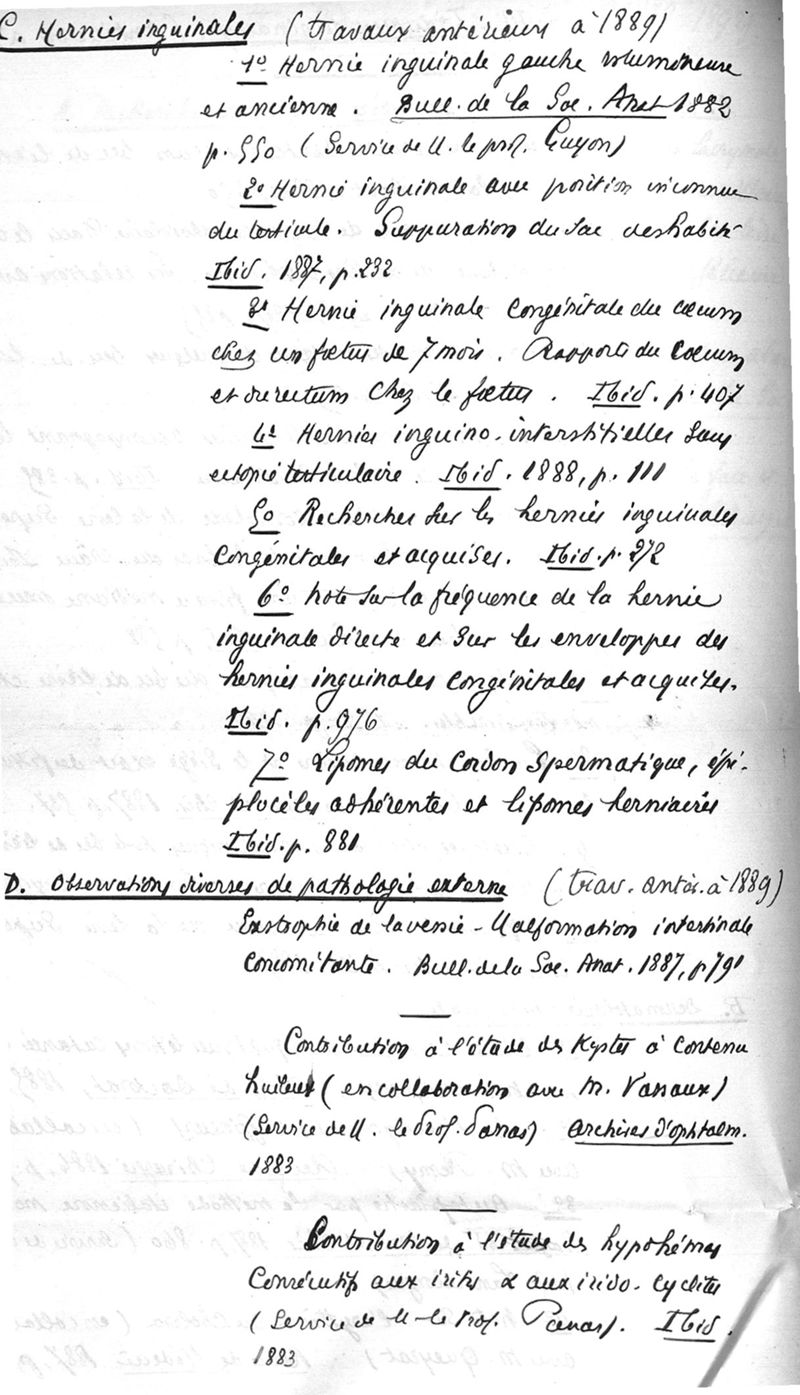 C. Hernies inguinales (travaux antérieurs à 1889)
1º Hernie inguinale gauche volumineuse
et ancienne. Bull. de la Soc. Anat 1882
p. 550 (Service de M. le prof. Guyon)
2º Hernie inguinale avec position inconnue
du testicule. Suppuration du sac deshabité
Ibid. 1887, p. 232
3º Hernie inguinale congénitale du cœcum
chez un fœtus de 7 mois. Rapports du Cœcum
et du rectum chez le fœtus. Ibid. p. 407
4º Hernies inguino-interstitielles sans
ectopie testiculaire. Ibid. 1888, p. 111
5º Recherches sur les hernies inguinales
congénitales et acquises. Ibid. p. 272
6º Note sur la fréquence de la hernie
inguinale directe et sur les enveloppes des
hernies inguinales congénitales et acquises.
Ibid. p. 976
7º Lipomes du cordon spermatique, épi-
plocèles adhérentes et lipomes herniaires
Ibid. p. 881
D. Observations diverses de pathologie externe (trav. antér. à 1889)
Exstrophie de la vessie - Malformation intestinale
concomitante. Bull. de la Soc. Anat. 1887, p. 791
Contribution à l'étude des Kystes à contenu
huileux (en collaboration avec M. Vassaux)
(Service de M. le Prof. Panas) Archives d'ophtalm.
1883
Contribution à l'étude des hypohémas
Consécutifs aux iritis & aux irido-cyclites
(Service de M. le Prof. Panas). Ibid.
1883